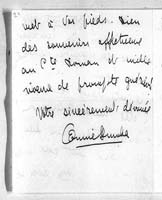 met à vos pieds. Bien
des souvenirs affectueux
au Cte Roman et mille
vœux de prompte guérison
Votre sincèrement dévouée